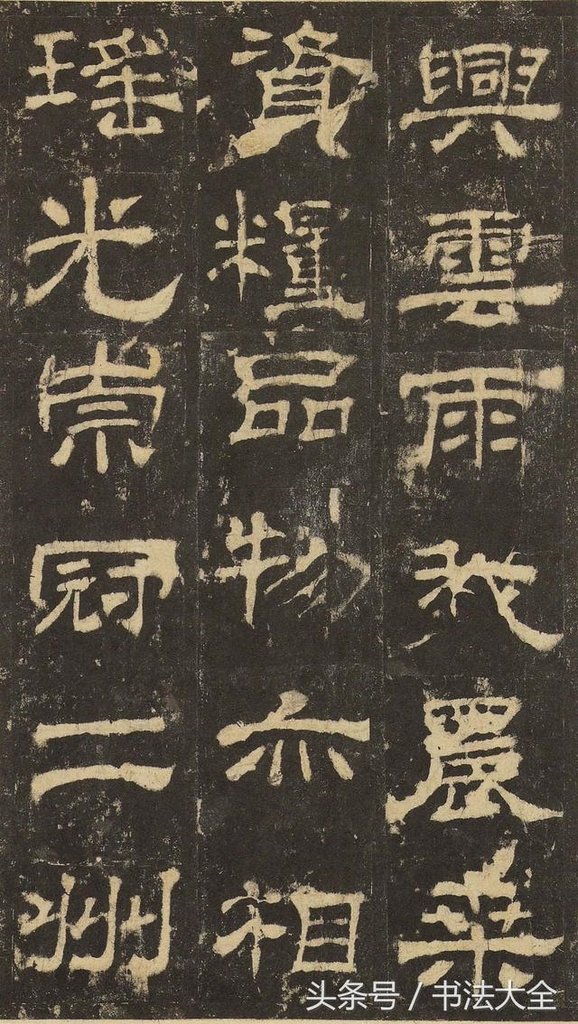 興雲雨我農桑
資糧品物亦相
瑤光崇冠二州
头条号 / 书法大全